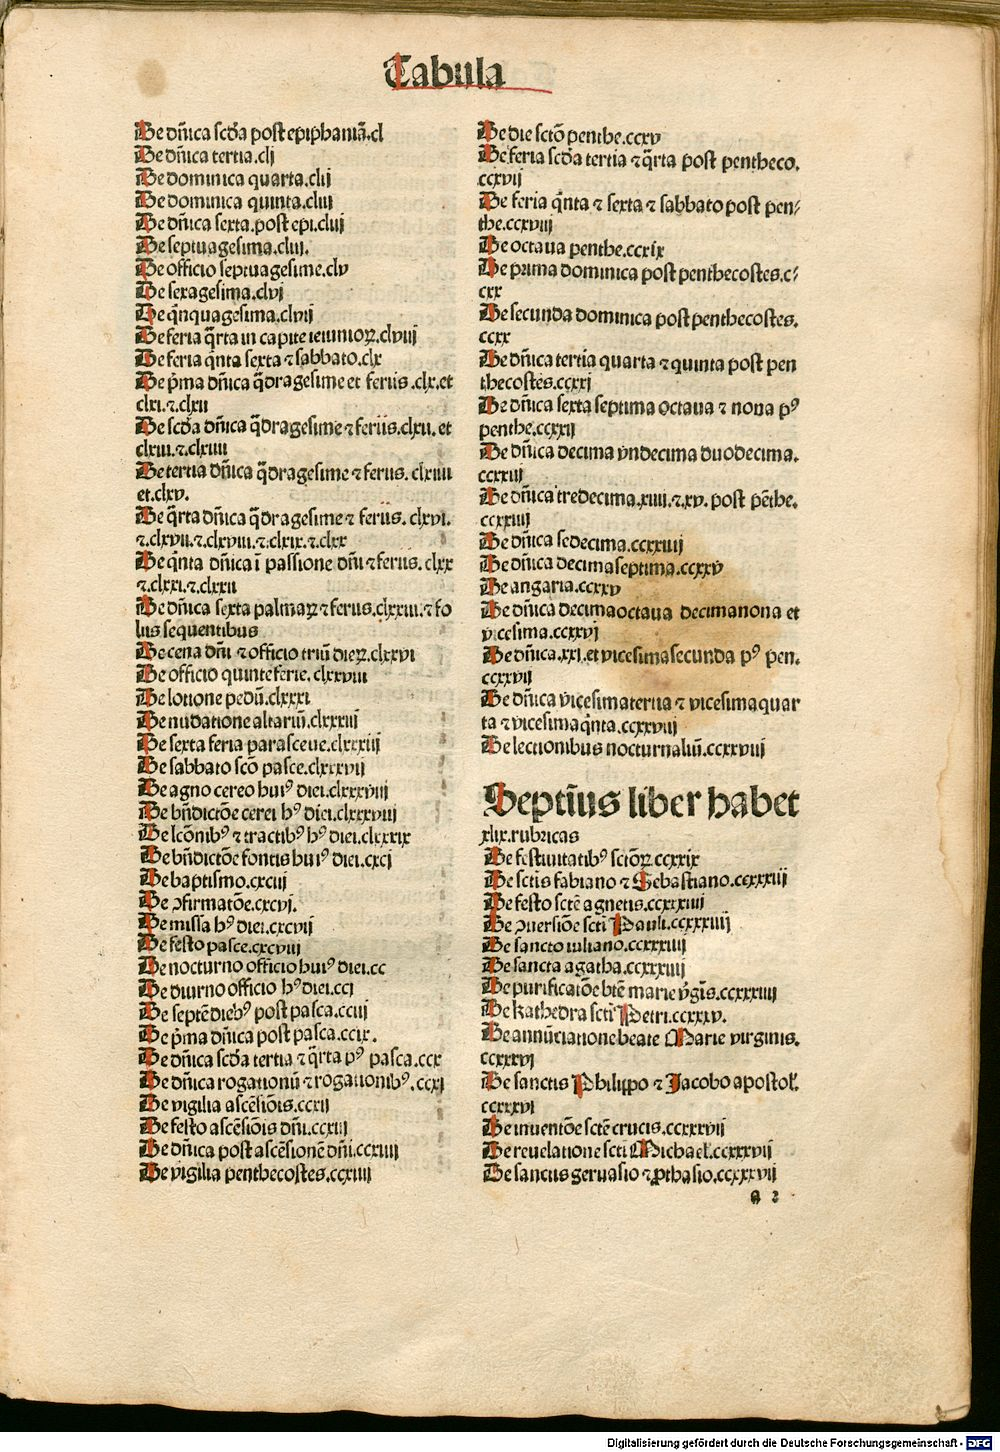 Tabula
De dñica scđa post epiphaniã.cl
De dñica tertia.clj
De dominica quarta.clij
De dominica quinta.cliij
De dñica sexta.post epi.cliij
De septuagesima.cliij.
De officio septuagesime.clv
De sexagesima.clvj
De q̃nquagesima.clvij
De feria q̃rta in capite ieiunioꝝ.clviij
De feria q̃nta sexta ⁊ sabbato.clx
De p̃ma dñica q̃dragesime et feriis.clx.et
clxi.⁊.clxii
De scđa dñica q̃dragesime ⁊ feriis.clxii. et
clxiii.⁊.clxiiii
De tertia dñica q̃dragesime ⁊ feriis. clxiiii
et.clxv.
De q̃rta dñica q̃dragesime ⁊ feriis. clxvi.
⁊.clxvii.⁊.clxviii.⁊.clxix.⁊.clxx
De q̃nta dñica ĩ passione dñi ⁊ feriis. clxx
⁊.clxxi.⁊.clxxii
De dñica sexta palmaꝝ ⁊ feriis.clxxiii.⁊ fo
liis sequentibus
De cena dñi ⁊ officio triũ dieꝝ.clxxvi
De officio quinte ferie. clxxviii
De lotione pedũ.clxxxi
De nudatione altariũ.clxxxiij
De sexta feria parasceue.clxxxiij
De sabbato scõ pasce.clxxxvij
De agno cereo huiꝰ diei.clxxxviij
De bñdictõe cerei hꝰ diei.clxxxviij
De lcõnibꝰ ⁊ tractibꝰ hꝰ diei.clxxxix
De bñdictõe fontis huiꝰ diei.cxcj
De baptismo.cxciij
De ꝯfirmatõe.cxcvj.
De missa hꝰ diei.cxcvij
De festo pasce.cxcviij
De nocturno officio huiꝰ diei.cc
De diurno officio hꝰ diei.ccj
De septẽ diebꝰ post pasca.cciij
De p̃ma dñica post pasca.ccix.
De dñica scđa tertia ⁊ q̃rta pꝰ pasca.ccx
De dñica rogationũ ⁊ rogationibꝰ.ccxj
De vigilia ascẽsiõis.ccxij
De festo ascẽsiõis dñi.ccxiij
De dñica post ascẽsionẽ dñi.ccxiiij
De vigilia penthecostes.ccxiiij
De die sctõ penthe.ccxv
De feria scđa tertia ⁊ q̃rta post pentheco.
ccxvij
De feria q̃nta ⁊ sexta ⁊ sabbato post pen⸗
the.ccxviij
De octaua penthe.ccxix
De prima dominica post penthecostes.c⸗
cxx
De secunda dominica post penthecostes.
ccxx
De dñica tertia quarta ⁊ quinta post pen
thecostes.ccxxj
De dñica sexta septima octaua ⁊ nona pꝰ
penthe.ccxxij
De dñica decima vndecima duodecima.
ccxxiij
De dñica tredecima.xiiii.⁊.xv. post pẽthe.
ccxxiiij
De dñica sedecima.ccxxiiij
De dñica decimaseptima.ccxxv
De angaria.ccxxv
De dñica decimaoctaua decimanona et
vicesima.ccxxvj
De dñica.xxi.et vicesimasecunda pꝰ pen.
ccxxvij
De dñica vicesimatertia ⁊ vicesimaquar
ta ⁊ vicesimaq̃nta.ccxxviij
De lectionibus nocturnaliũ.ccxxviij
Septim̃us liber habet
xlix.rubricas
De festiuitatibꝰ sctõꝝ.ccxxix
De sctis fabiano ⁊ Sebastiano.ccxxxiij
De festo sctẽ agnetis.ccxxxiiij
De ꝯuersiõe scti Pauli.ccxxxiiij
De sancto iuliano.ccxxxiiij
De sancta agatha.ccxxxiiij
De purificatõe btẽ marie vg̃is.ccxxxiiij
De kathedra scti Petri.ccxxxv.
De annũciatione beate Marie virginis.
ccxxxvj
De sanctis Philippo ⁊ Jacobo apostol'.
ccxxxvj
De inuentõe sctẽ crucis.ccxxxvij
De reuelatione scti Michael.ccxxxvij
De sanctis geruasio ⁊ ꝓthasio.ccxxxvij
a 2
Digitalisierung gefördert durch die Deutsche Forschungsgemeinschaft - DFG